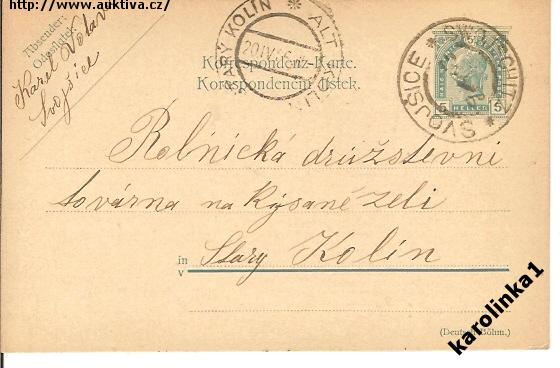 http://www.auktiva.cz/
Absender:
Odesílatel:
Karel Votav
Svojšice
STARÝ KOLÍN * ALT KOLIN
20 IV
SVOJŠICE * SWOJSCHITZ *
5 HELLER 5
Korrespondenz-Karte.
Korespondenční lístek.
Rolnická družstevní
továrna na kysané zelí
in
v
Starý Kolín
(Deutsch-Böhm.)
karolinka1